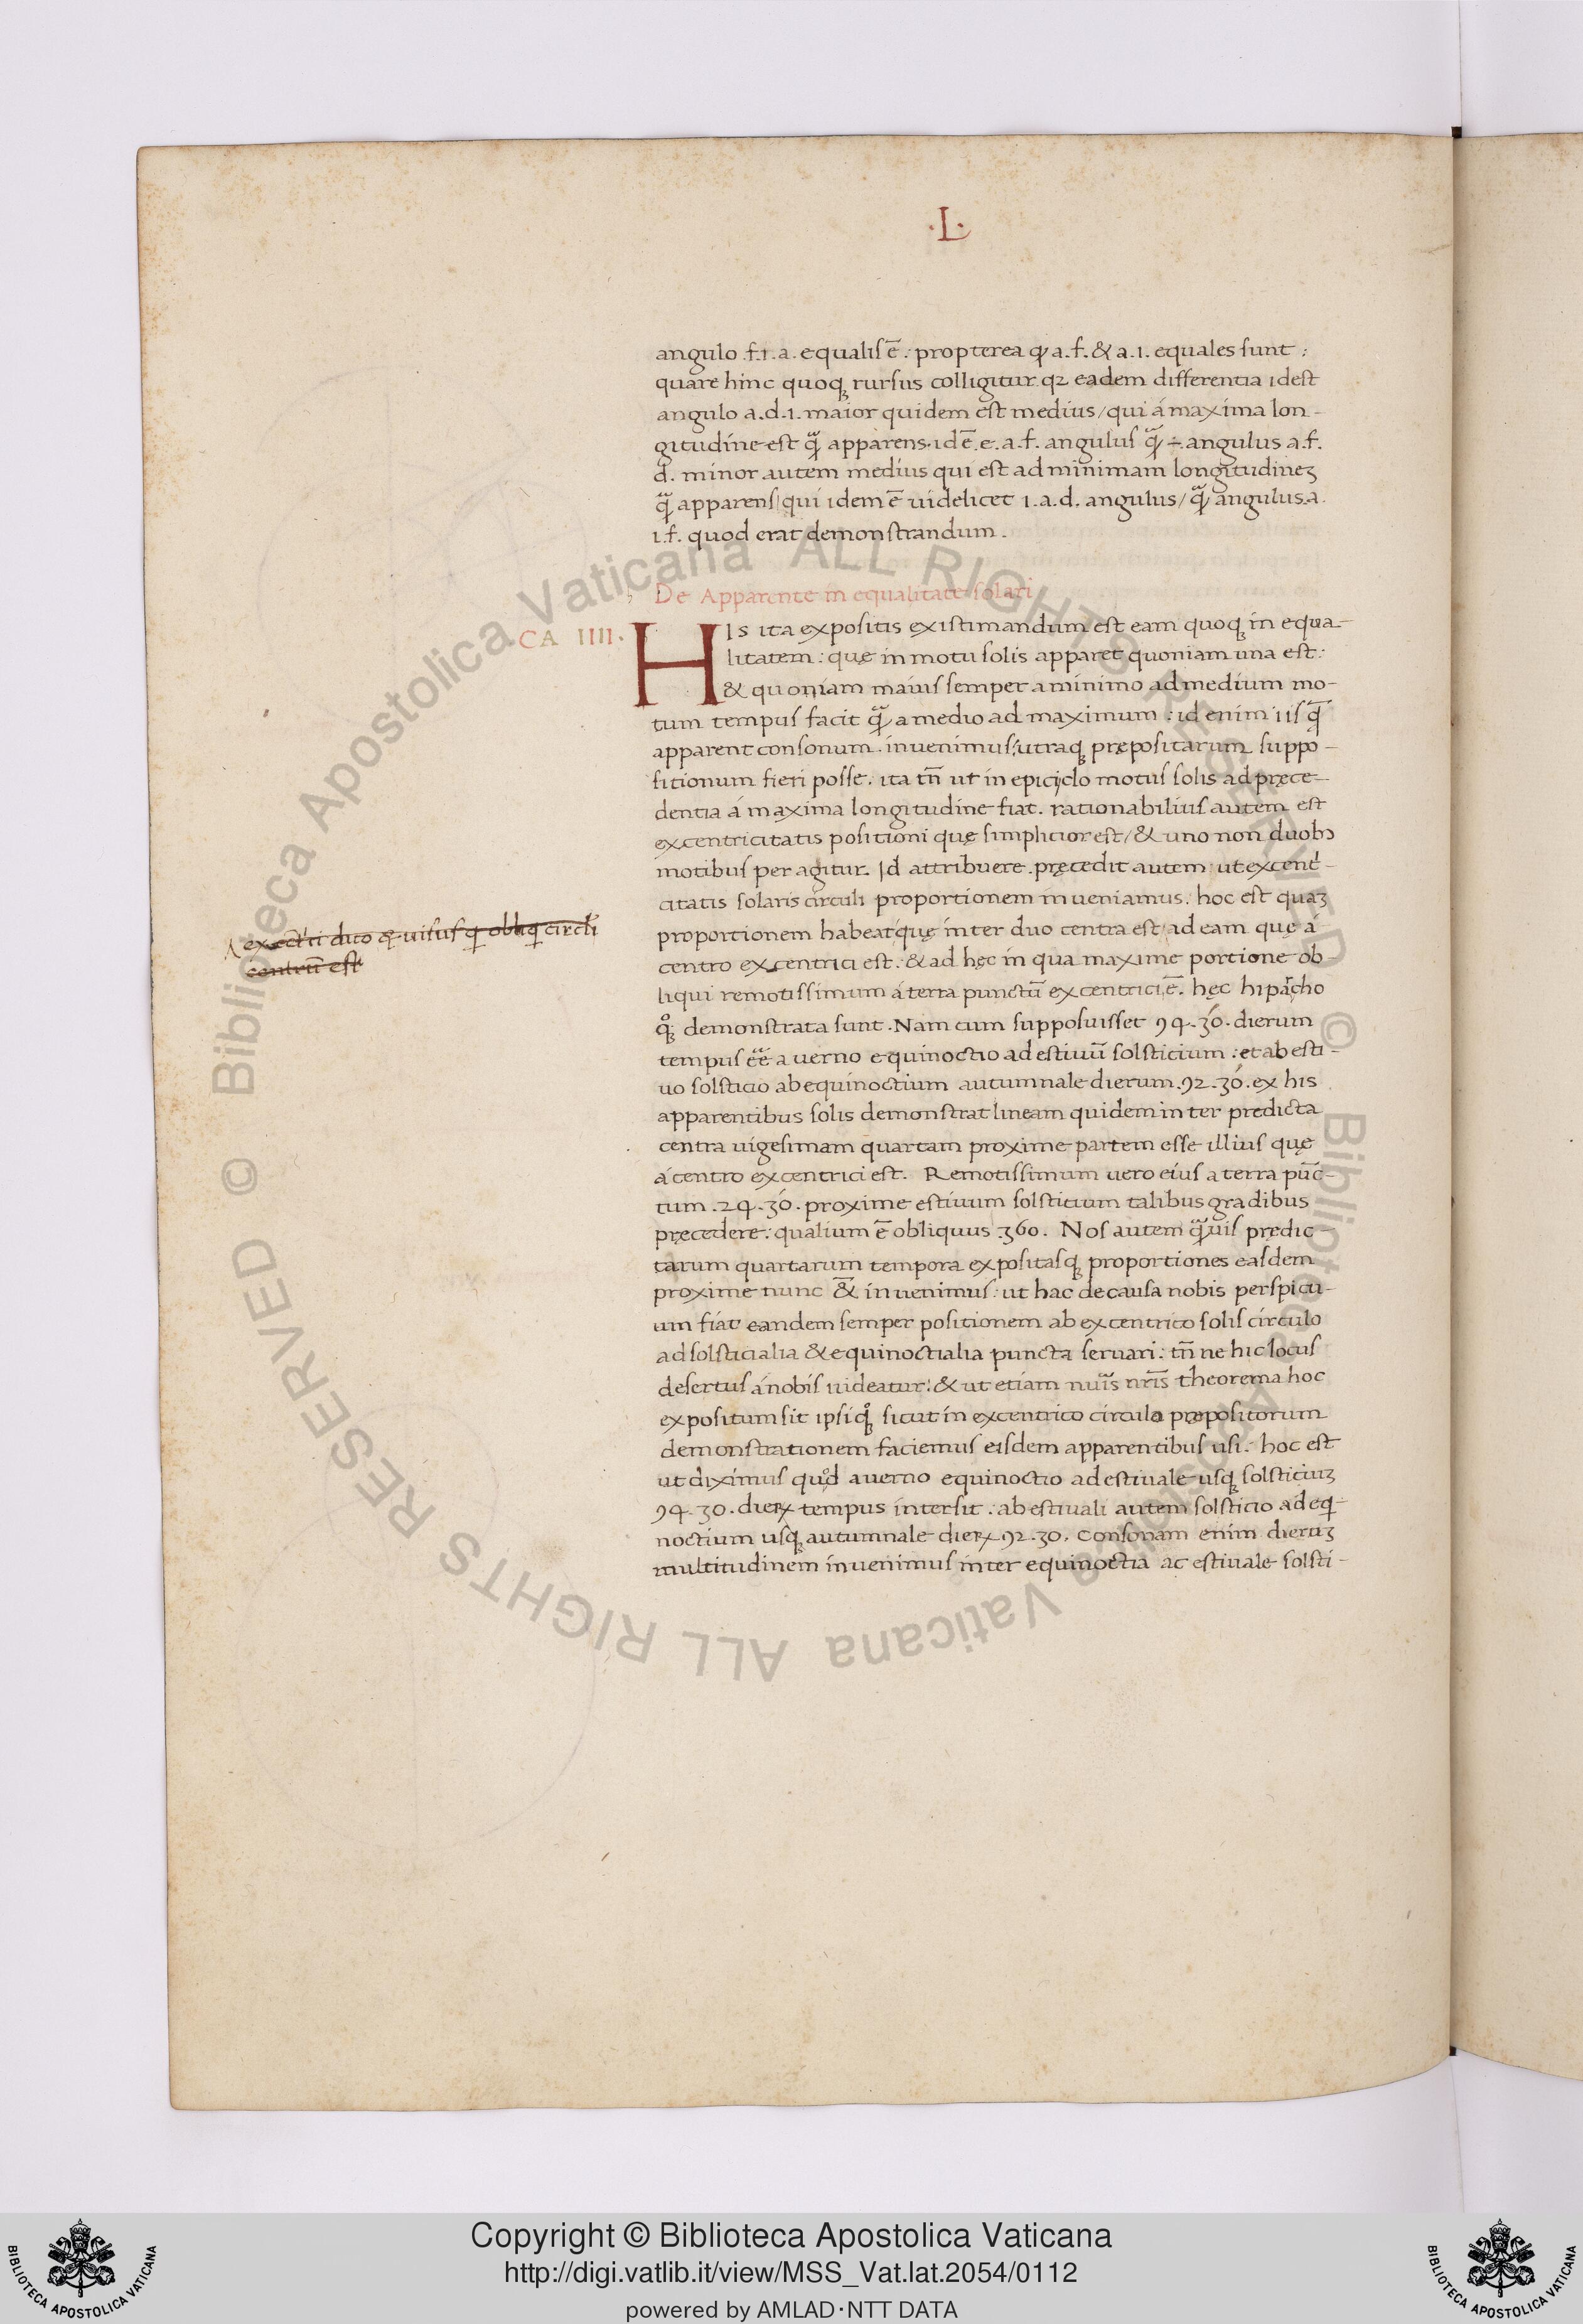 ·L·
angulo .f.1.a. equalis ē: propterea ꝙ a.f. & a.1. equales sunt:
quare hinc quoqꝫ rursus colligitur qꝛ eadem differentia idest
angulo a.d.1. maior quidem est medius/qui á maxima lon-
gitudine est q̃ꝫ apparens. id ē .e.a.f. angulus q̃ꝫ ÷ angulus a.f.
d. minor autem medius qui est ad minimam longitudineꝫ
q̃ꝫ apparens/qui idem ē uidelicet 1.a.d. angulus/q̃ꝫ angulus.a.
1.f. quod erat demonstrandum.
De Apparente in equalitate solari
CA IIII.
HIs ita expositis existimandum est eam quoqꝫ in equa-
litatem: quę in motu solis apparet quoniam una est:
& quoniam maius semper a minimo ad medium mo-
tum tempus facit q̃ꝫ a medio ad maximum: id enim iis q̄
apparent consonum. inuenimus: utraqꝫ prępositarum suppo-
sitionum fieri posse. ita tñ ut in epiciclo motus solis ad pręce-
dentia á maxima longitudine fiat. rationabilius autem est
excentricitatis positioni quę simplicior est/& uno non duobꝰ
motibus per agitur. Id attribuere. pręcedit autem ut excent̍-
citatis solaris circuli proportionem inueniamus. hoc est quaꝫ
proportionem habeat quę inter duo centra est/ad eam quę á
centro excentrici est: & ad hęc in qua maxime portione ob-
liqui remotissimum á terra punctũ excentrici ē. hęc hiparcho
qͦꝫ demonstrata sunt. Nam cum supposuisset 94. 30. dierum
tempus ẽe a uerno equinoctio ad estiuũ solsticium: et ab esti-
uo solsticio ab equinoctium autumnale dierum. 92. 30. ex his
apparentibus solis demonstrat lineam quidem inter predicta
centra uigesimam quartam proxime partem esse illius quę
á centro excentrici est. Remotissimum uero eius a terra pũc-
tum. 24. 30. proxime estiuum solsticium talibus gradibus
pręcedere: qualium ē obliquus .360. Nos autem q̃ꝫuis prędic-
tarum quartarum tempora expositasqꝫ proportiones easdem
proxime nunc &̄ inuenimus: ut hac de causa nobis perspicu-
um fiat eandem semper positionem ab excentrico solis circulo
ad solsticialia & equinoctialia puncta seruari: tñ ne hic locus
desertus á nobis uideatur: & ut etiam nuĩs nr̃is theorema hoc
expositum sit ipsi qͦꝫ sicut in excentrico circulo prepositorum
demonstrationem faciemus eisdem apparentibus usi: hoc est
ut diximus quod a uerno equinoctio ad estiuale usqꝫ solsticiuꝫ
94. 30. dieꝝ tempus intersit: ab estiuali autem solsticio ad eqͥ-
noctium usqꝫ autumnale dieꝝ 92. 30. consonam enim dieruꝫ
multitudinem inuenimus inter equinoctia ac estiuale solsti-
centrũ est
Copyright © Biblioteca Apostolica Vaticana
http://digi.vatlib.it/view/MSS_Vat.lat.2054/0112
powered by AMLAD·NTT DATA
BIBLIOTECA APOSTOLICA VATICANA
BIBLIOTECA APOSTOLICA VATICANA
© Biblioteca Apostolica Vaticana ALL RIGHTS RESERVED © Biblioteca Apostolica Vaticana ALL RIGHTS RESERVED